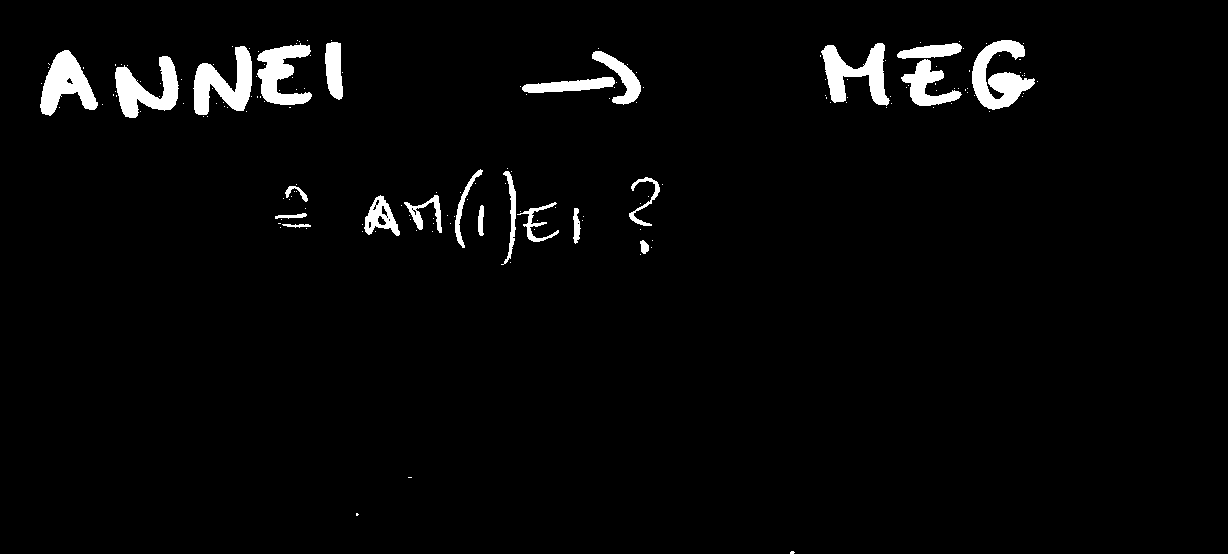 ANNEI → MEG
≙ AM(I)EI ?